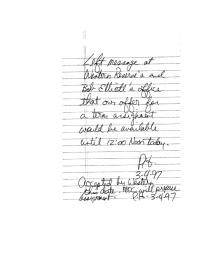 Left message at
Western Reserve's and
Bob Elliott's office
that our offer for
a term assignment
would be available
until 12:00 Noon today.
3-4-97
Accepted by Western
this date. will prepare
assignment. 3-4-97